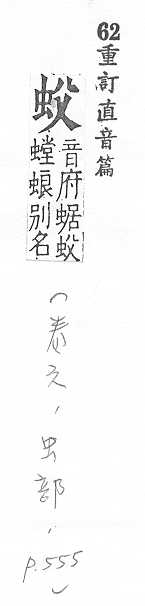 62重訂直音篇
蚥
音府蜛蚥
螳蜋別名
(卷六,虫部,p.555)